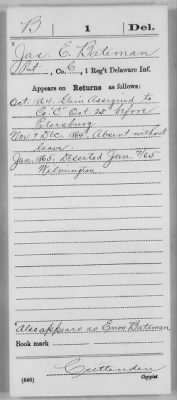 B 1 Del.
Jas E. Bateman
Pvt, Co. C, 1 Reg't Delaware Inf.
Appears on Returns as follows:
Oct. 1864. Gain Assigned to
Co "C" Oct. 25 before
Petersburg
Nov & Dec. 1864. Absent without
leave
Jan. 1865. Deserted Jan 7/65
Wilmington
Also appears as Enos Bateman
Book mark
Crittenden
(646) Copyist